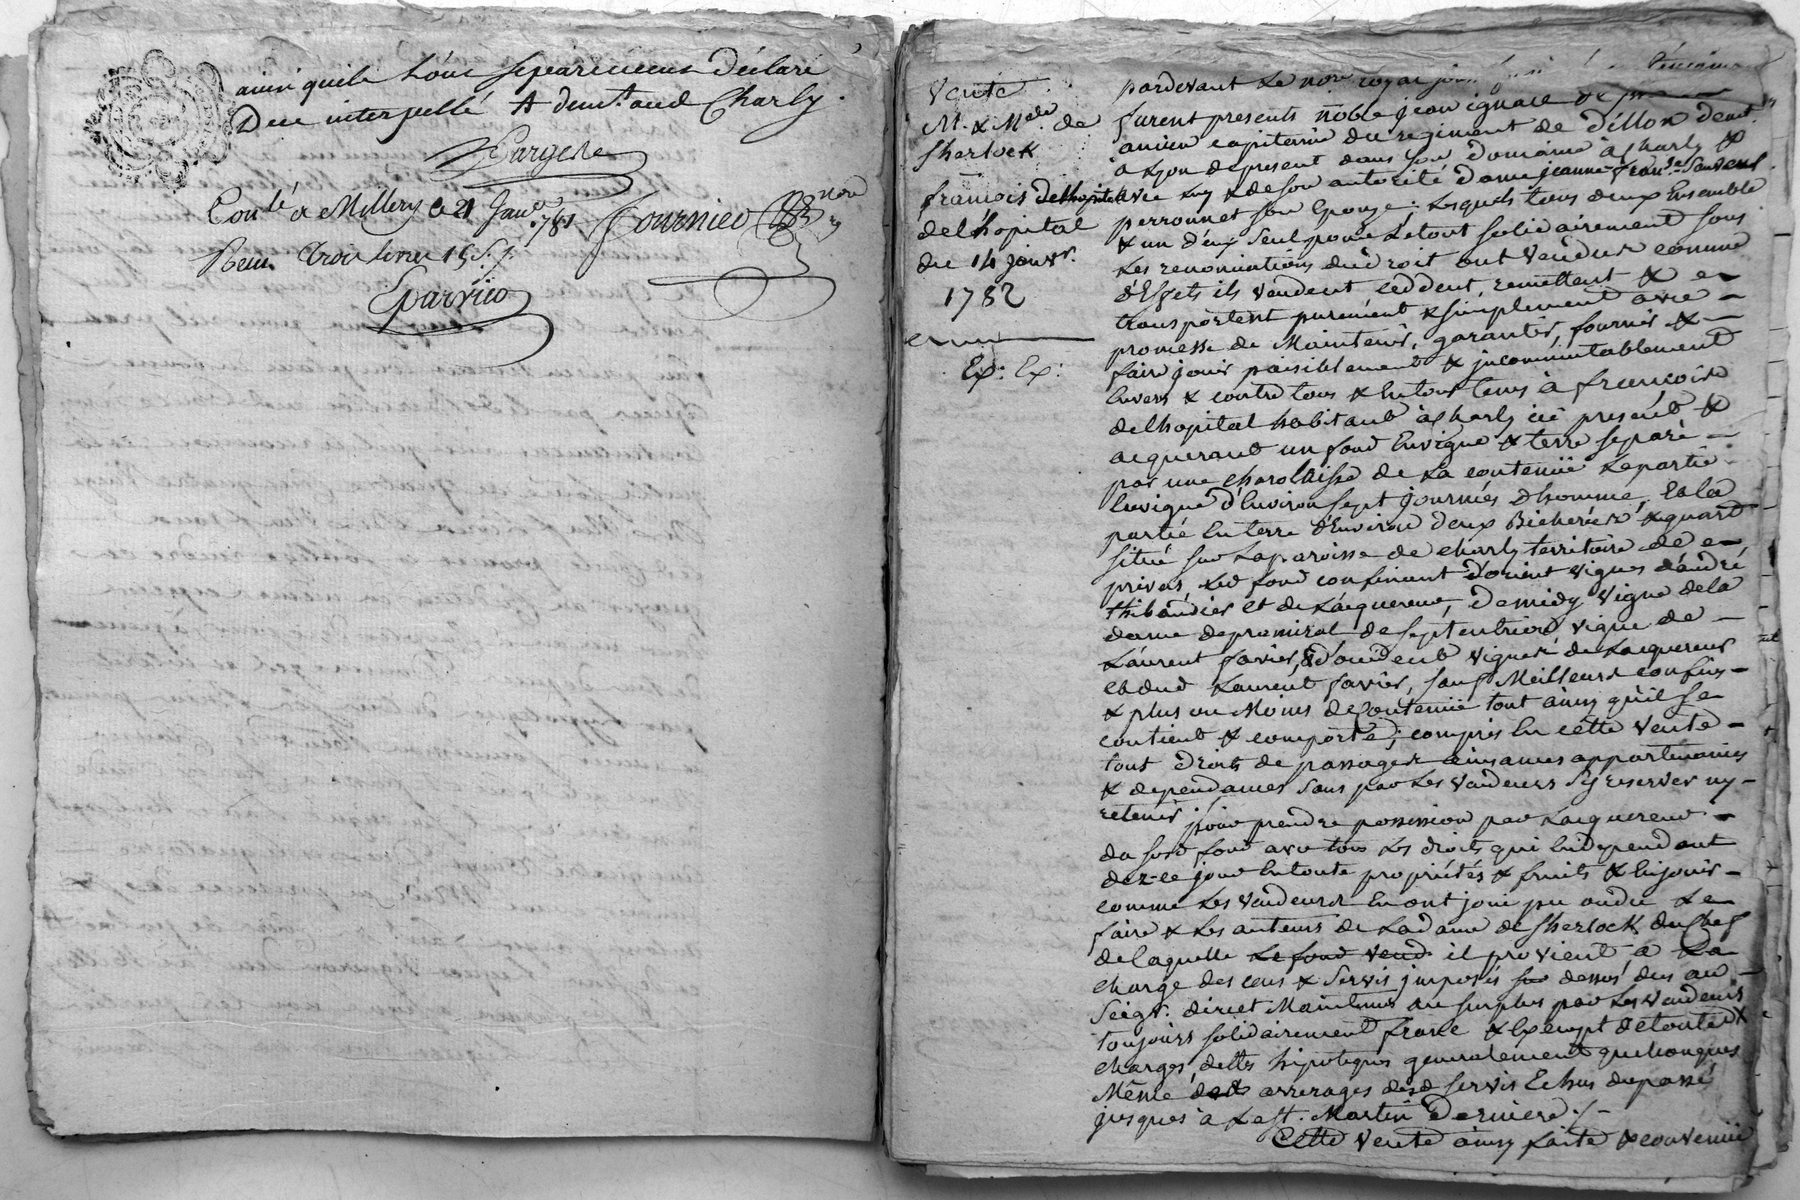 ainsi quils l'ont separement déclaré
Dece interpellé A demt. aud Charly.
Cont.lé a Millery le 21 Janv. 1781
Reçu trois livres 15 s.
Fournier nore
Vente
M. & Mde. de
Sherlock
a
françois delhopital
de l'hopital
du 14 janvr.
1782
Ex: Ex:
pardevant Le nore. royal
furent presents noble jean ignace de
ancien capitaine du regiment de Dillon demt.
a Lyon de present dans son Domaine a Charly &
avec luy & de son autorité dame jeanne
perronnet son Epouze. Lesquels tous deux Ensemble
& un d'eux seul pour Le tout solidairement sous
Les renonciations du droit ont vendus comme
d'Effets ils vendent ceddent, remettent & e-
transportent purement & simplement avec -
promesse de Maintenir, garantir, fournir & -
faire jouir paisiblement & jncommutablement
Envers & contre tous & En tout tems à françois
delhopital habitant à Charly icé present &
acquerant un fond En vigne & terre separé -
par une charolaisse de La contenüe La partie
En vigne d'Environ sept journées d'homme, & la
partie En terre d'Environ deux Bicherées & quart
situé sur La paroisse de charly territoire de e-
privas, Led fond confinant d'orient vignes d'andré
thibaudier et de L'acquereur, de midy vigne de la
dame de premiral de septentrion vigne de -
Laurent favier, & d'occident vignes de Lacquereur
et dud Laurent favier, sauf Meilleurs confins -
& plus ou Moins de Contenüe tout ainsy qu'il se
contient & comporte; compris En cette vente -
tout Droits de passages aisances appartenances
& dependances sans par Les vendeurs s'y reserver ny -
retenir pour prendre possession par Lacquereur -
du susd fond avec tous Les droits qui En dependent
dez-ce jour En toute propriétés & fruits & En jouir -
comme Les vendeurs En ont joui pu ou du Le
faire & Les auteurs de La dame de Sherlock du chef
de laquelle Le fond vend il provient, à La
charge des cens & servis jmposés sur dessus dus au -
seigr. direct Maintenus au surplus par Les vendeurs
toujours solidairement franc & Exempt de toutes
charges dettes hipoteques generalement quelconques
Même des arrerages desd servis Echus du passé
jusques à La St. Martin Derniere. -
Cette vente ainsy faite & convenüe